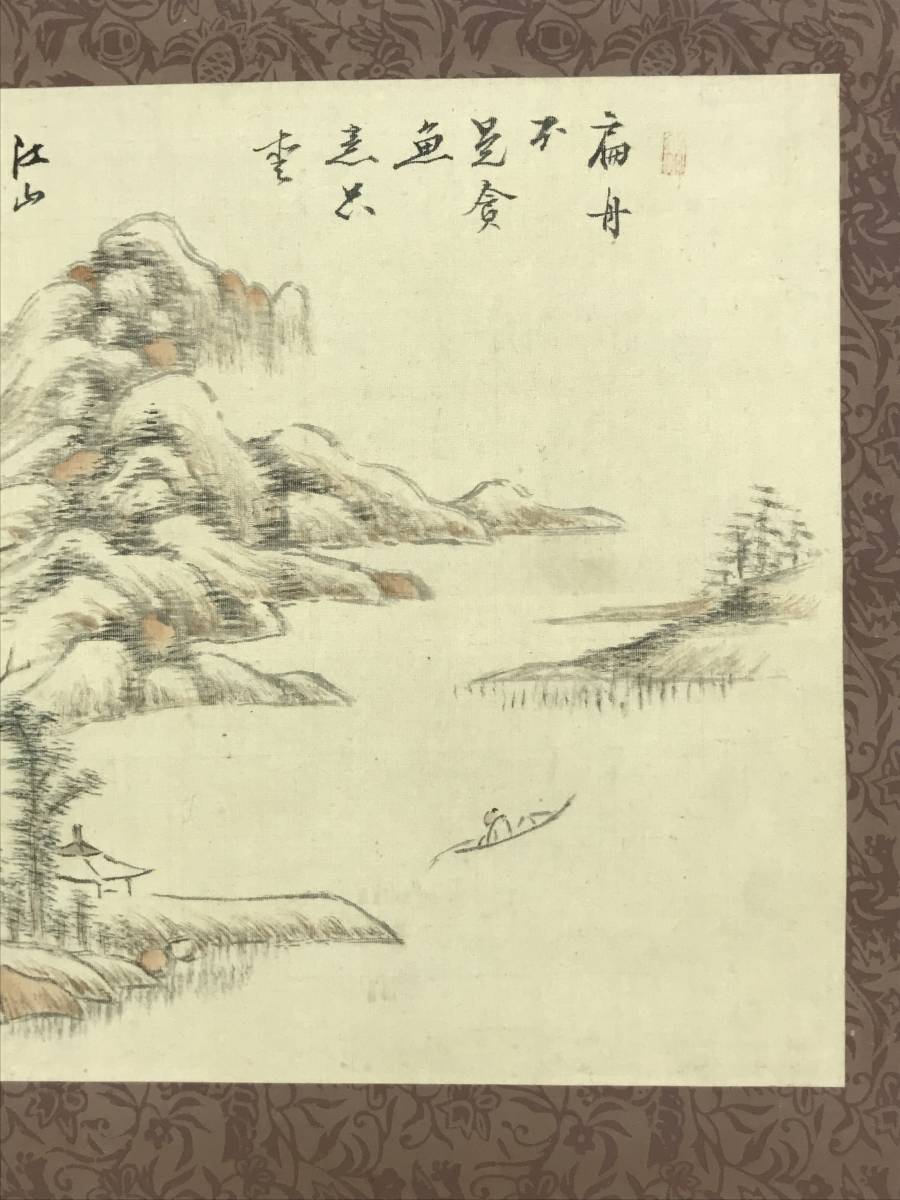 扁舟
不
是貪
魚
意只
愛
江山